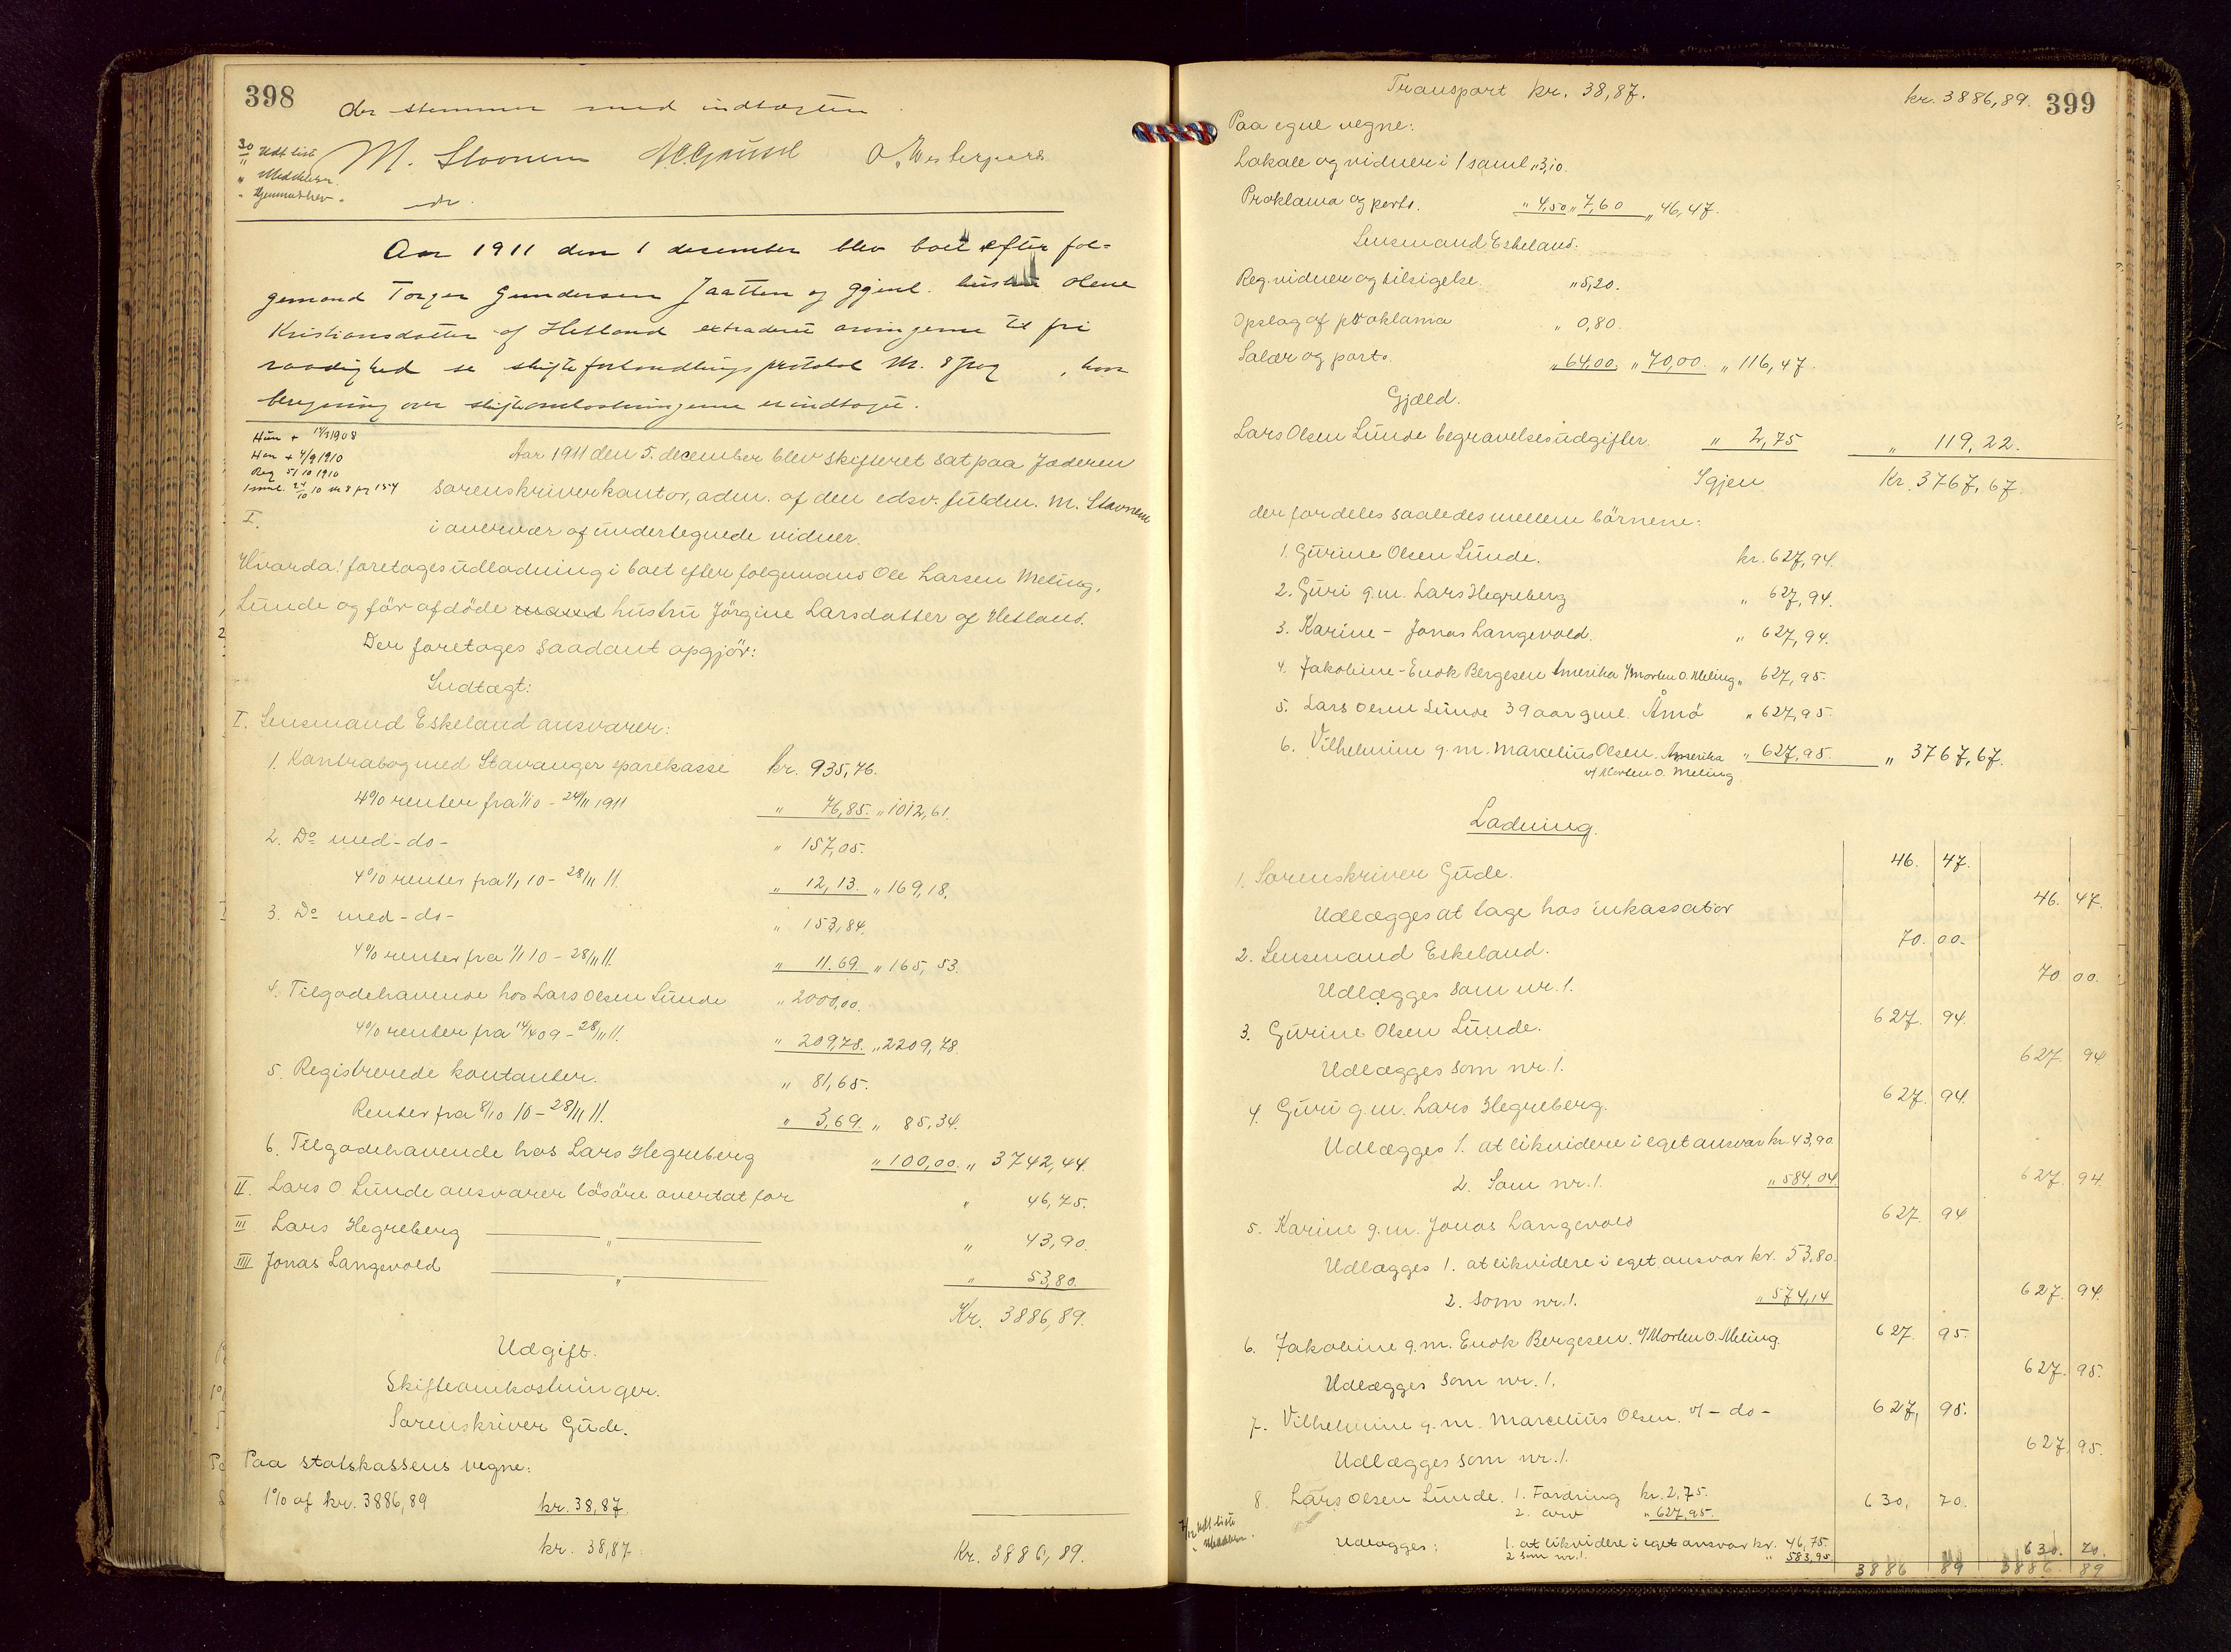 398
der stemmer med indtægten.
30/11 Udt liste
" Meddelelser.
" Hjemmelsbrev.
M. Stavnem
O. Westergaard
Aar 1911 den 1 desember blev boet efter føl-
gemand Torger Gundersen Jaatten og ggjenl. hustru Olene
Kristiansdatter af Hetland extraderet arvingerne til fri
raadighed se skifteforhandlingsprotokol Nr. 8 pag , hvor
beregning over skifteomkostningerne er indtaget.
Hun + 14/3 1908
Han + 4/9 1910
Reg 5/10 1910
1 saml. 24/10 10 nr 8 pg 154
Aar 1911 den 5. december blev skifteret sat paa Jæderen
sorenskriverkontor, adm. af den edsv. fuldm. M. Stavnem
i overvær af undertegnede vidner.
I.
Hvorda! foretages udlodning i boet efter følgemand Ole Larsen Meling,
Lunde og før afdøde mand hustru Jörgine Larsdatter af Hetland.
Der foretages saadant opgjör:
Indtægt:
I. Lensmand Eskeland ansvarer:
1. Kontrabog med Stavanger sparekasse kr. 935,76.
4% renter fra 1/1 10 - 24/11 1911 " 76,85. " 1012,61.
2. Do med - do - " 157,05.
4% renter fra 1/1 10 - 28/11 11. " 12,13. " 169,18.
3. Do med - do - " 153,84.
4% renter fra 1/1 10 - 28/11 11. " 11.69. " 165,53.
4. Tilgodehavende hos Lars Olsen Lunde " 2000,00.
4% renter fra 14/4 09 - 28/11 11. " 209,78. " 2209,78.
5. Registrerede kontanter. " 81,65.
Renter fra 8/10 10 - 28/11 11. " 3,69. " 85,34.
6. Tilgodehavende hos Lars Hegreberg " 100,00. " 3742,44
II. Lars O. Lunde ansvarer lösöre overtat for " 46,75.
III Lars Hegreberg — " — " 43,90.
IIII Jonas Langevold — " — " 53,80.
Kr. 3886,89.
Udgift.
Skifteomkostninger.
Sorenskriver Gude.
Paa statskassens vegne:
1% af kr. 3886,89 kr. 38,87.
kr. 38,87. Kr. 3886,89.
399
Transport kr. 38,87. kr. 3886,89.
Paa egne vegne:
Lokale og vidner i 1 saml " 3,10.
Proklama og porto. " 4,50 " 7,60 " 46,47.
Lensmand Eskeland.
Reg. vidner og tilsigelse. " 5,20.
Opslag af proklama " 0,80.
Salær og porto. " 64,00. " 70,00. " 116,47.
Gjæld.
Lars Olsen Lunde begravelsesudgifter. " 2,75 " 119,22.
Igjen Kr. 3767,67.
der fordeles saaledes mellem börnene:
1. Gurine Olsen Lunde. kr. 627,94.
2. Guri g.m. Lars Hegreberg " 627,94.
3. Karine - Jonas Langevold. " 627,94.
4. Jakobine - Endk Bergesen Amerika v/ Morten O. Meling " 627,95.
5. Lars Olsen Lunde 39 aar gml. Åmö " 627,95.
6. Vilhelmine g.m. Marcelius Olsen. Amerika " 627,95. " 3767,67.
v/ Morten O. Meling
Lodning.
1. Sorenskriver Gude. 46. 47.
Udlægges at tage hos inkassator 46. 47.
2. Lensmand Eskeland. 70. 00.
Udlægges som nr. 1. 70 00.
3. Gurine Olsen Lunde. 627. 94.
Udlægges som nr. 1. 627. 94
4. Guri g.m. Lars Hegreberg. 627. 94.
Udlægges 1. at likvidere i eget ansvar kr. 43,90
2. Som nr. 1. " 584,04 627. 94.
5. Karine g.m. Jonas Langevold 627. 94
Udlægges 1. at likvidere i eget ansvar kr. 53,80.
2. Som nr. 1. " 574,14 627. 94.
6. Jakobine g.m. Endk Bergesen. v/ Morten O. Meling. 627. 95.
Udlægges som nr. 1. 627. 95.
7. Vilhelmine g.m. Marcelius Olsen. v/ - do - 627, 95.
Udlægges som nr. 1. 627, 95.
8. Lars Olsen Lunde. 1. Fordring kr. 2,75. 630, 70.
2. arv " 627,95.
7/12 Udt liste
" Meddelelser.
Udlægges: 1. at likvidere i eget ansvar kr. 46,75.
2 som nr. 1. " 583,95 630. 70.
3886 89 3886 89